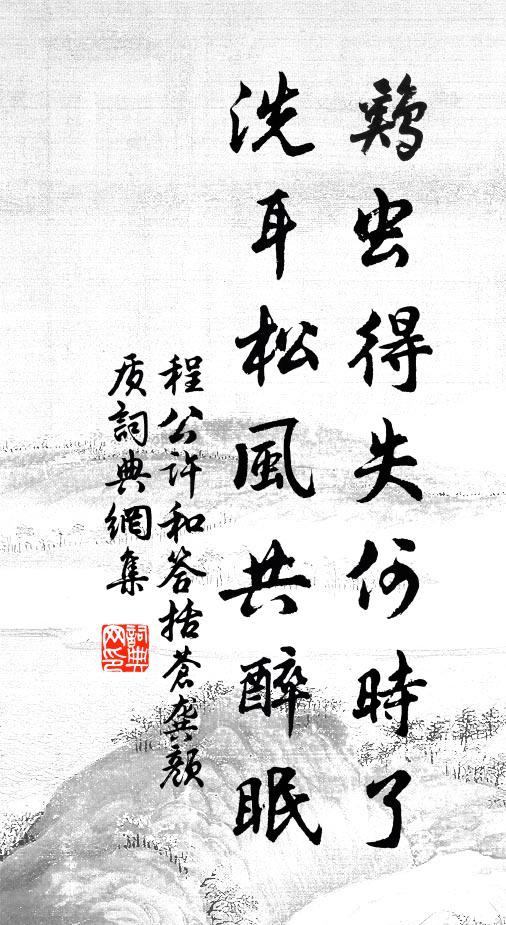 鷄虫得失何時了
洗耳松風共醉眠
程公許和答括蒼龔顏
质詞典網集
詞典
网印